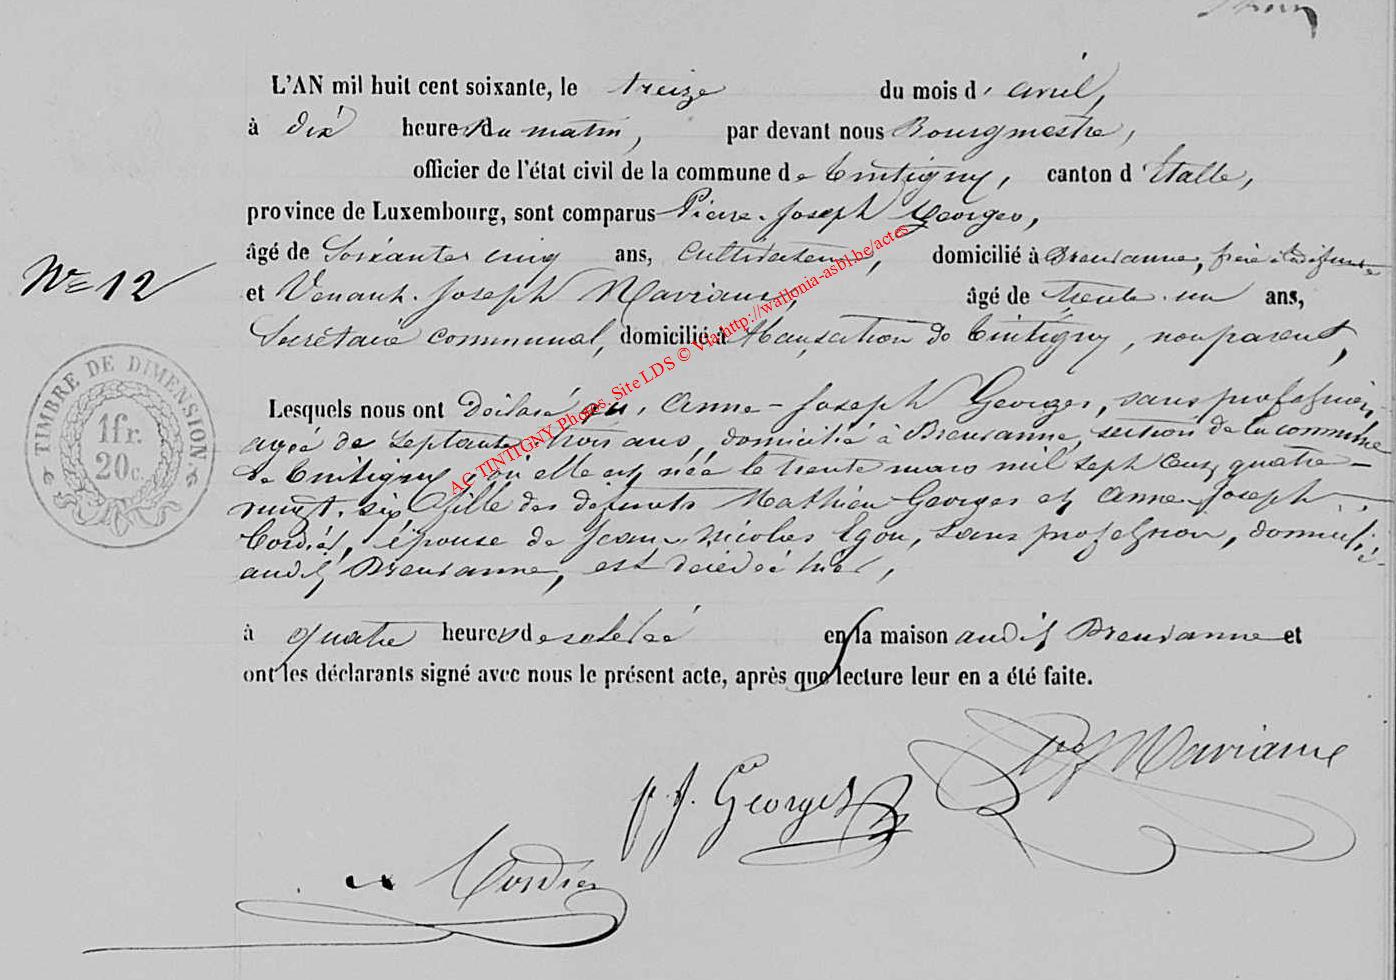 L'AN mil huit cent soixante, le treize du mois d'avril,
à dix heures du matin, par devant nous Bourgmestre,
officier de l'état civil de la commune de Tintigny, canton d'Etalle,
province de Luxembourg, sont comparus Pierre-Joseph Georges,
âgé de Soixante cinq ans, Cultivateur, domicilié à Breuvanne, frère à la défunte
N° 12
et Venant-Joseph Maviaux, âgé de trente-un ans,
Secrétaire communal, domicilié à Han, section de Tintigny, non parent,
TIMBRE DE DIMENSION
1fr.
20c.
Lesquels nous ont déclaré que, Anne-Joseph Georges, sans profession,
agée de septante-trois ans, domiciliée à Breuvanne, section de la commune
de Tintigny, qu'elle est née le trente mars mil sept cent quatre-
vingt-six fille des défunts Mathieu Georges et Anne-Joseph
Cordier, épouse de Jean-Nicolas Egon, sans profession, domicilié
audit Breuvanne, est décédée hier,
à quatre heures de relevée en la maison audit Breuvanne et
ont les déclarants signé avec nous le présent acte, après que lecture leur en a été faite.
Maviaux
p. j. Georges
Cordier
AC TINTIGNY Photos, Site LDS © Via http://wallonia-asbl.be/actes